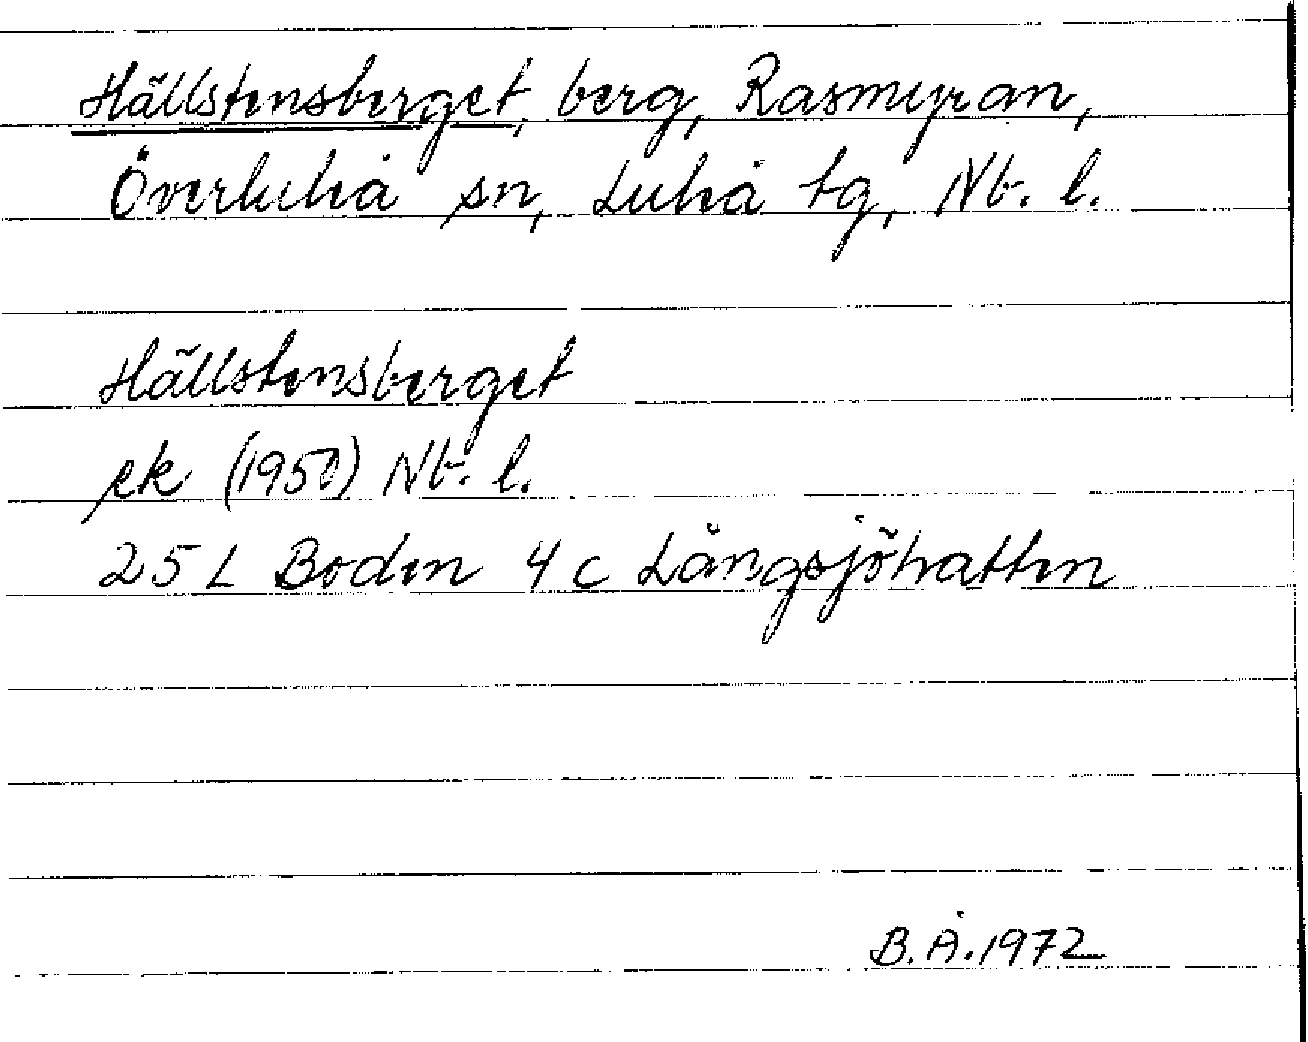 Hällstensberget, berg, Rasmyran,
Överluleå sn, Luleå tg, Nb. l.
Hällstensberget
ek (1950) Nb. l.
25 L Boden 4 c Långsjöhatten
B.Å.1972